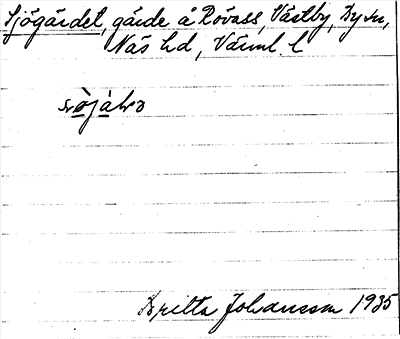 Sjögärdet, gärde å Rövass, Västby, By sn,
Näs hd, Värml. l
Britta Johansson 1935